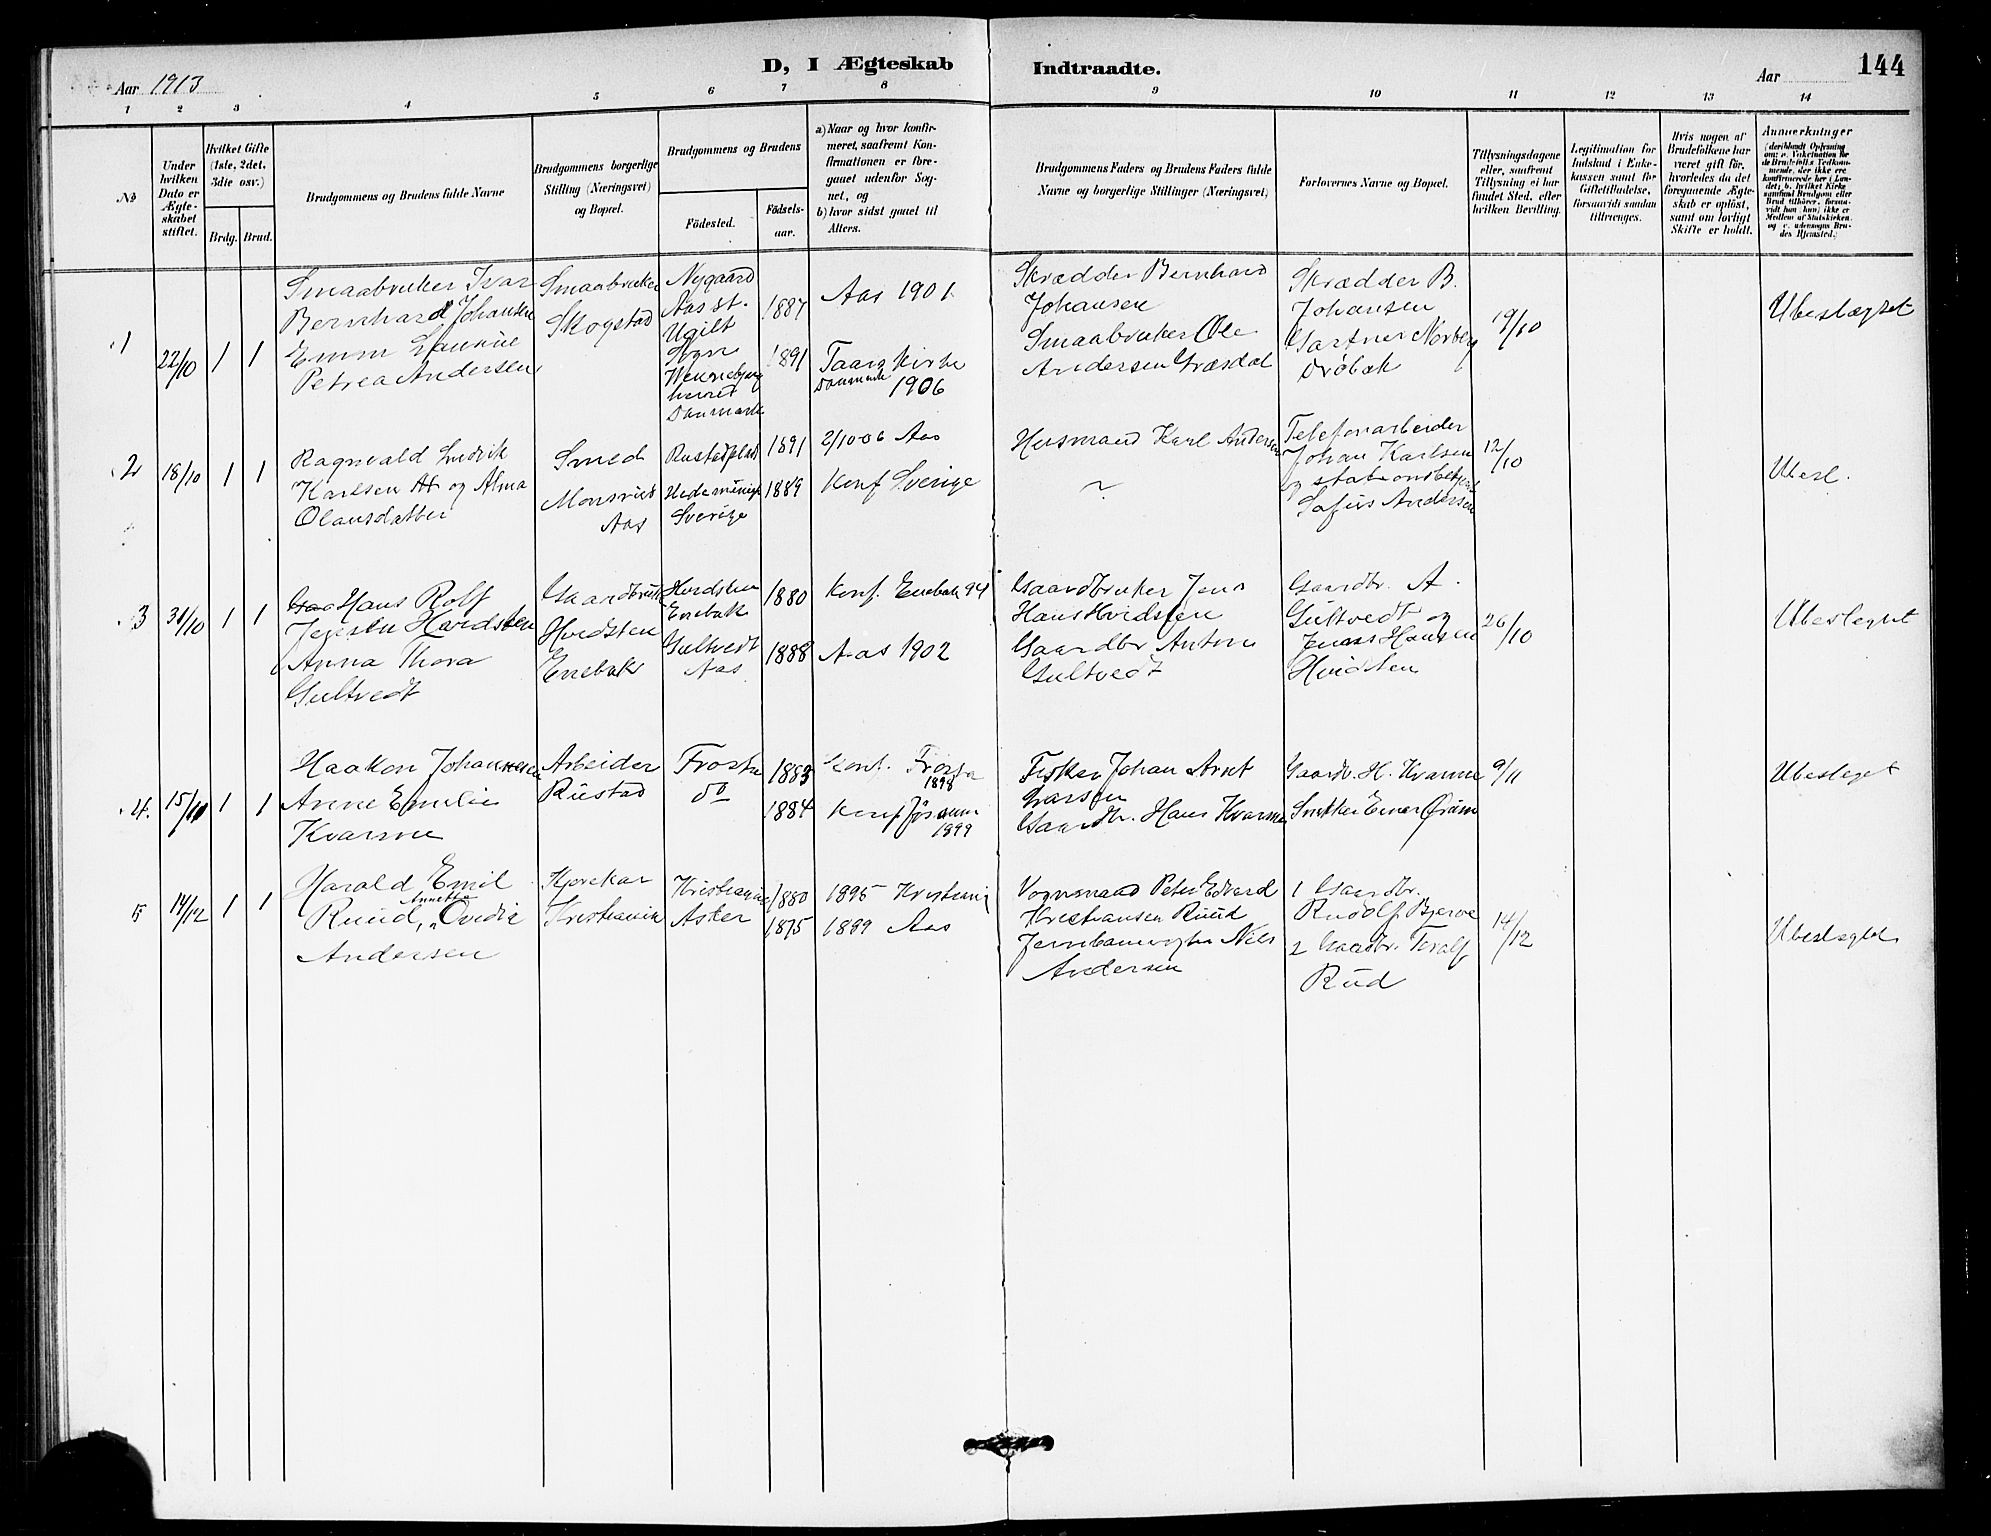 Aar 1913
D, I Ægteskab Indtraadte.
Aar
144
1 2 3 4 5 6 7 8 9 10 11 12 13 14
No
Under hvilken Dato er Ægteskabet stiftet.
Hvilket Gifte (1ste, 2det, 3die osv.)
Brdg. Brud.
Brudgommens og Brudens fulde Navne
Brudgommens borgerlige Stilling (Næringsvei) og Bopæl.
Brudgommens og Brudens
Fødested.
Fødselsaar.
a) Naar og hvor konfirmeret, saafremt Konfirmationen er foregaaet udenfor Sognet, og
b) hvor sidst gaaet til Alters.
Brudgommens Faders og Brudens Faders fulde Navne og borgerlige Stillinger (Næringsvei)
Forlovernes Navne og Bopæl.
Tillysningsdagene eller, saafremt Tillysning ei har fundet Sted, efter hvilken Bevilling.
Legitimation for Indskud i Enkekassen samt for Giftetilladelse, forsaavidt saadan tiltrænges.
Hvis nogen af Brudefolkene har været gift før, hvorledes da det foregaaende Ægteskab er opløst, samt om lovligt Skifte er holdt.
Anmerkninger (deriblandt Oplysning om: a. Vakcination for de Brudefolks Vedkommende, der ikke ere konfirmerede her i Landet; b. hvilket Kirkesamfund Brudgom eller Brud tilhører, forsaavidt han (hun) ikke er Medlem af Statskirken. og c. udensogns Brudes Hjemsted.)
1
22/10
1 1
Smaabruker Ivar
Bernhard Johansen
Emm Laurine
Petrea Andersen
Smaabruker
Skogstad
Nygaard
Aas st.
Ugilt
Sogn
Danmark
1887
1891
Aas 1901
Taars Kirke
Danmark
1906
Skrædder Bernhard
Johansen
Smaabruker Ole
Andersen Græsdal
Skrædder B.
Johansen
Gartner Norberg
Drøbak
19/10
Ubeslægtet
2
18/10
1 1
Ragnvald Ludvik
Karlsen og Alma
Olausdatter
Smed
Monsrud
Aas
Rustadplads
Sverige
1891
1889
2/10 06 Aas
Konf Sverige
Husmand Karl Andersen
~
Telefonarbeider
Johan Karlsen
og
Sofus Andersen
12/10
Ubesl.
3
31/10
1 1
Hans Rolf
Jensen Hvidsten
Anna Thora
Gultvedt
Gaardbruker
Hvidsten
Enebak
Hvidsten
Enebakk
Gultvedt
Aas
1880
1888
Konf. Enebak 94
Aas 1902
Gaardbruker Jens
Hans Hvidsten
Gaardbr Anton
Gultvedt
Gaardbr. A.
Gultvedt og
Hansen
Hvidsten
26/10
Ubeslegtet
4.
15/11
1 1
Haakon Johannesen
Anne Emelie
Kvarme
Arbeider
Rustad
Frosta
do
1883
1884
Konf. Frosta
1898
Konf
1899
Fisker Johan Arnt
Larsen
Gaardbr. Hans Kvarme
Gaardbr. H. Kvarme
Snekker Einar
9/11
Ubesleget
5
14/12
1 1
Harald Emil
Ruud, Annette Ovidia
Andersen
Kjørekar
Kristiania
Kristiania
Asker
1880
1875
1895 Kristiania
1889 Aas
Vognmand Peter Edvard
Kristiansen Ruud
Jernbanevogter Nils
Andersen
1 Gaardbr.
Rudolf Bjerve
2 Gaardbr. Toralf
Rud
14/12
Ubeslegtet